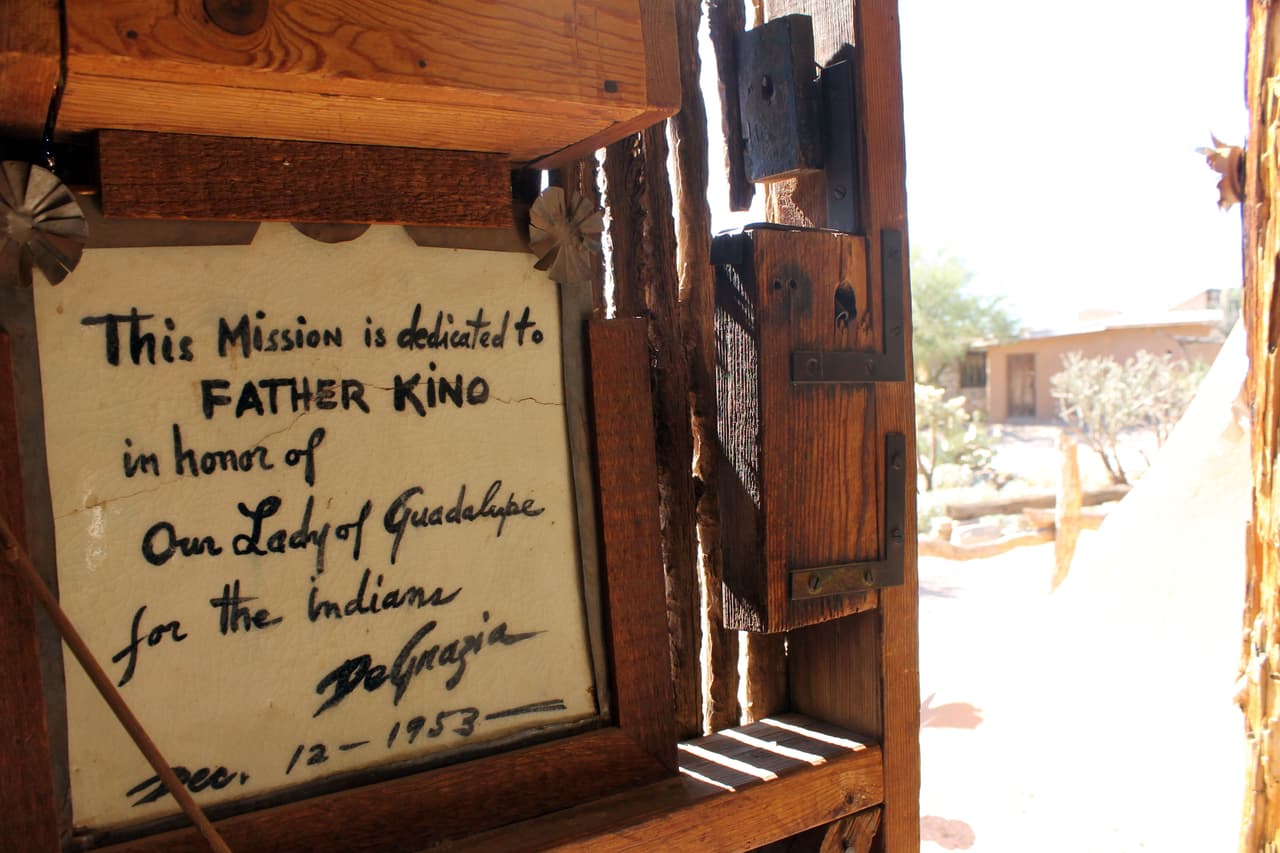 This Mission is dedicated to
FATHER KINO
in honor of
Our Lady of Guadalupe
for the Indians
DeGrazia
Dec. 12 - 1953 -